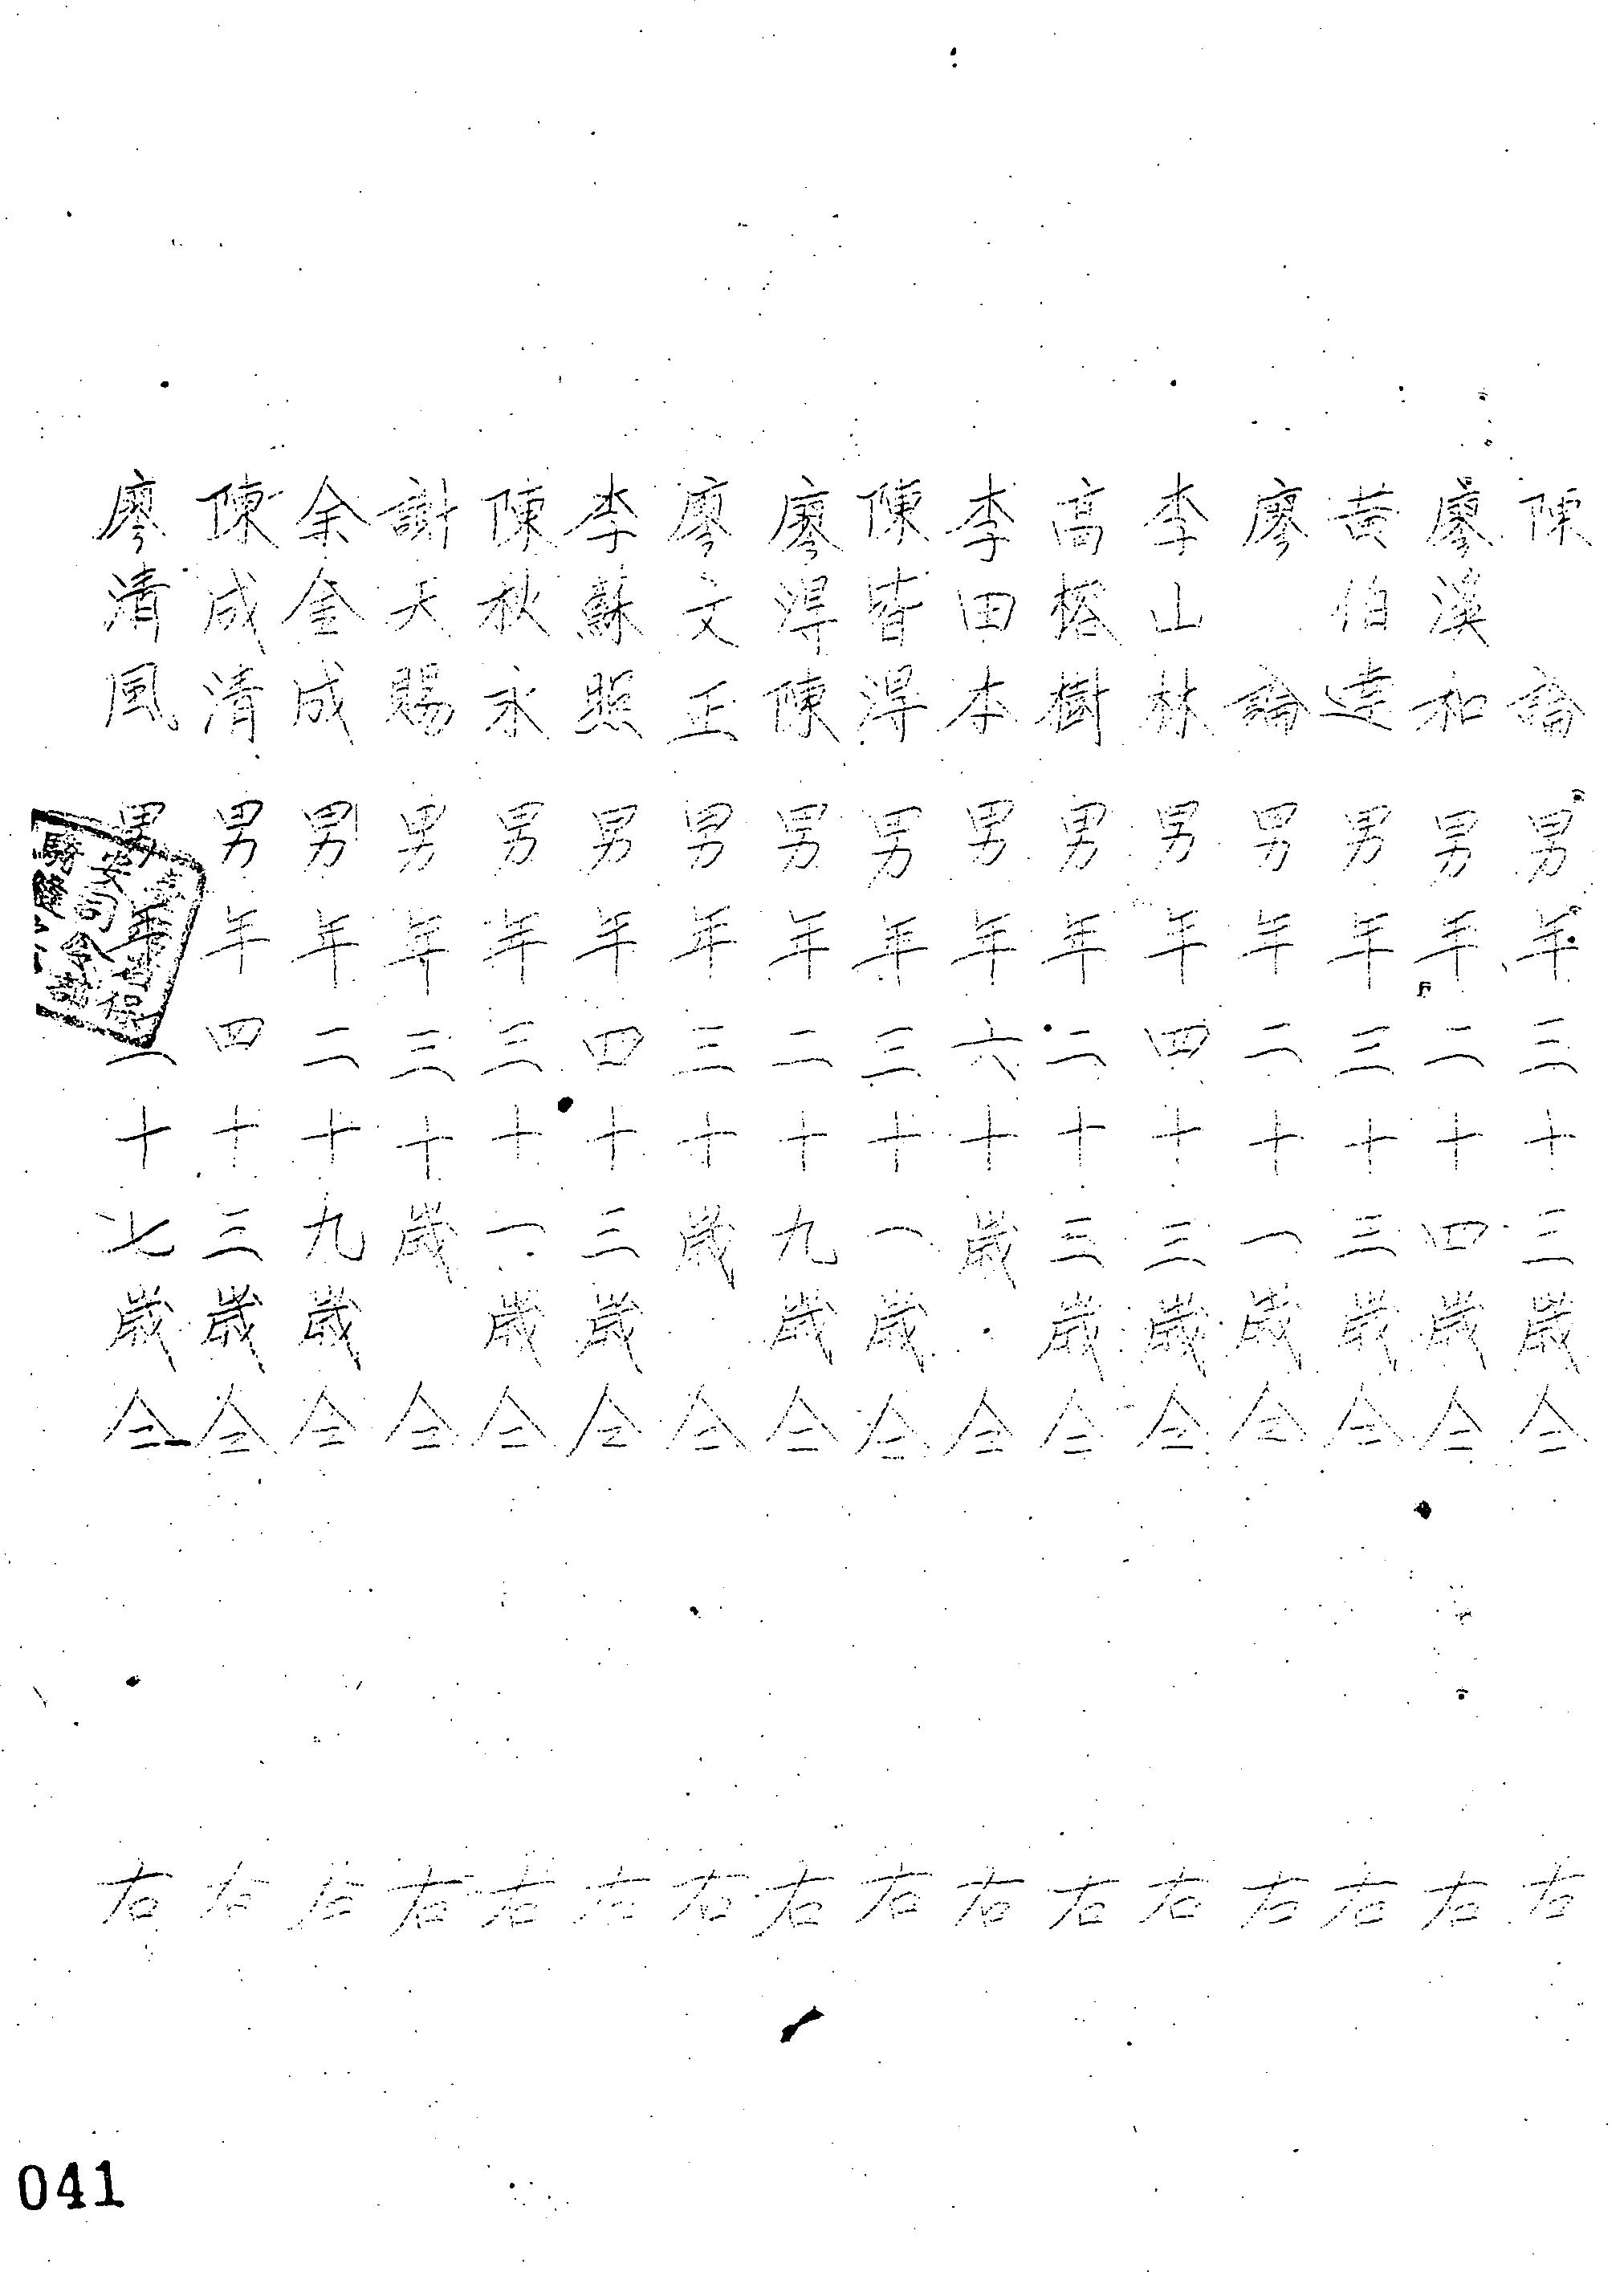 陳論 男 年三十三歲 仝右
廖溪和 男 年二十四歲 仝右
黃伯達 男 年三十三歲 仝右
廖論 男 年二十一歲 仝右
李山林 男 年四十三歲 仝右
高榕樹 男 年二十三歲 仝右
李田本 男 年六十歲 仝右
陳皆得 男 年三十一歲 仝右
廖得陳 男 年二十九歲 仝右
廖文正 男 年三十歲 仝右
李蘇照 男 年四十三歲 仝右
陳秋永 男 年三十一歲 仝右
謝天賜 男 年三十歲 仝右
余金成 男 年二十九歲 仝右
陳成清 男 年四十三歲 仝右
廖清風 男 年二十七歲 仝右
041